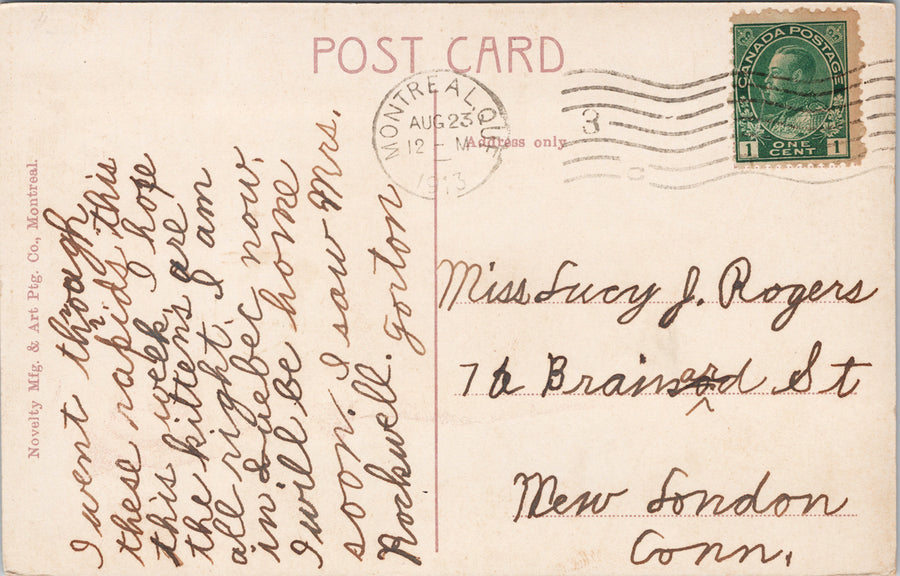 POST CARD
Address only
MONTREAL, QUE
AUG 23
12 - M
1913
3
CANADA POSTAGE
1 ONE CENT 1
Novelty Mfg. & Art Ptg. Co., Montreal.
I went through
these rapids this
this week. I hope
the kittens are
all right. I am
in Quebec now.
I will be home
soon. I saw Mrs.
Rockwell. Gorton
Miss Lucy J. Rogers
76 Brainard St
New London
Conn.